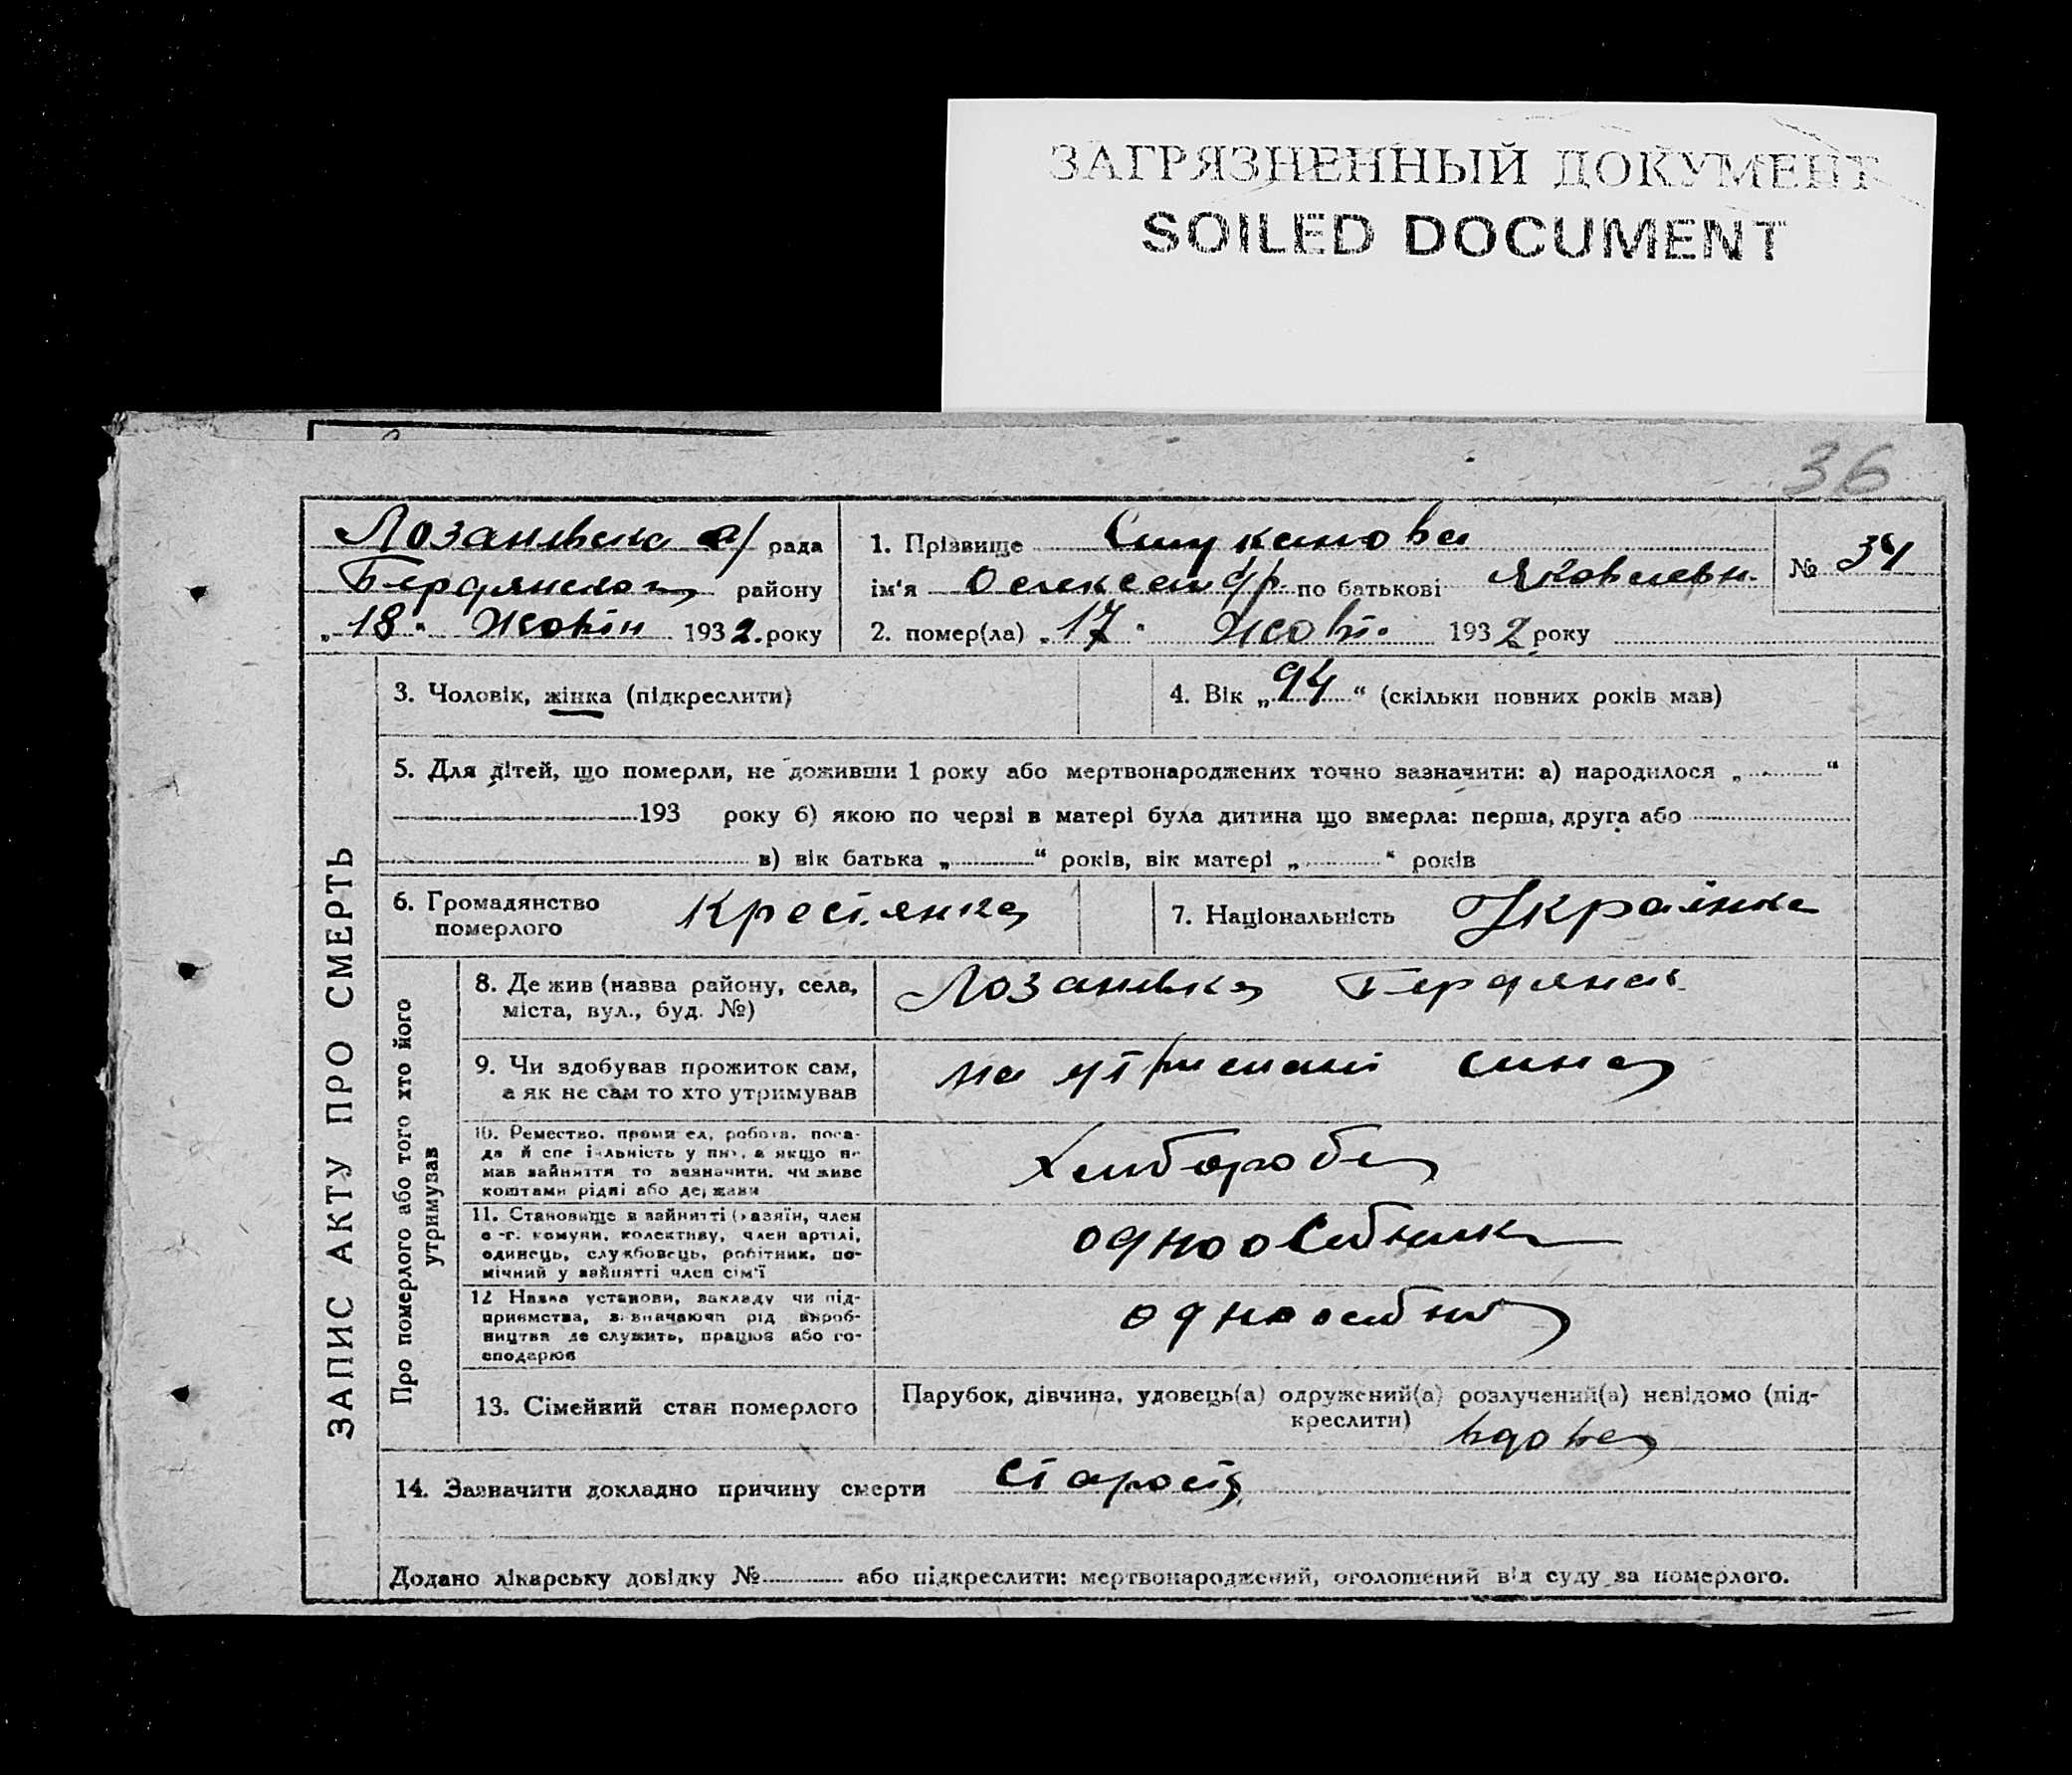 ЗАГРЯЗНЕННЫЙ ДОКУМЕНТ
SOILED DOCUMENT
36
Лозанивська с/ рада
Бердянського району
„18“ Жовтн 1932. року
1. Прізвище
ім'я Олександр. по батькові Яковлевн.
2. помер(ла) „17“ Жовт. 1932 року
№ 34
ЗАПИС АКТУ ПРО СМЕРТЬ
3. Чоловік, жінка (підкреслити)
4. Вік „94“ (скільки повних років мав)
5. Для дітей, що померли, не доживши 1 року або мертвонароджених точно зазначити: а) народилося „ “
193 року б) якою по черзі в матері була дитина що вмерла: перша, друга або
в) вік батька „ “ років, вік матері „ “ років
6. Громадянство
померлого
Крестянка
7. Національність Українка
Про померлого або того хто його
утримував
8. Де жив (назва району, села,
міста, вул., буд. №)
Лозанивка Бердянськ
9. Чи здобував прожиток сам,
а як не сам то хто утримував
на утримані сина
10. Ремество, промисел, робота, поса-
да й спеціяльність у ній, а якщо не
мав зайняття то зазначити, чи живе
коштами рідні або держави
Хлибороб
11. Становище в зайнятті (хазяїн, член
с.-г. комуни, колективу, член артілі,
одинець, службовець, робітник, по-
мічний у зайнятті член сім'ї
одноосибник
12 Назва установи, закладу чи під-
приємства, зазначаючи рід вироб-
ництва де служить, працює або го-
сподарює
13. Сімейний стан померлого
Парубок, дівчина, удовець(а) одружений(а) розлучений(а) невідомо (під-
креслити)
вдова
14. Зазначити докладно причину смерти
Додано лікарську довідку № або підкреслити: мертвонароджений, оголошений від суду за померлого.